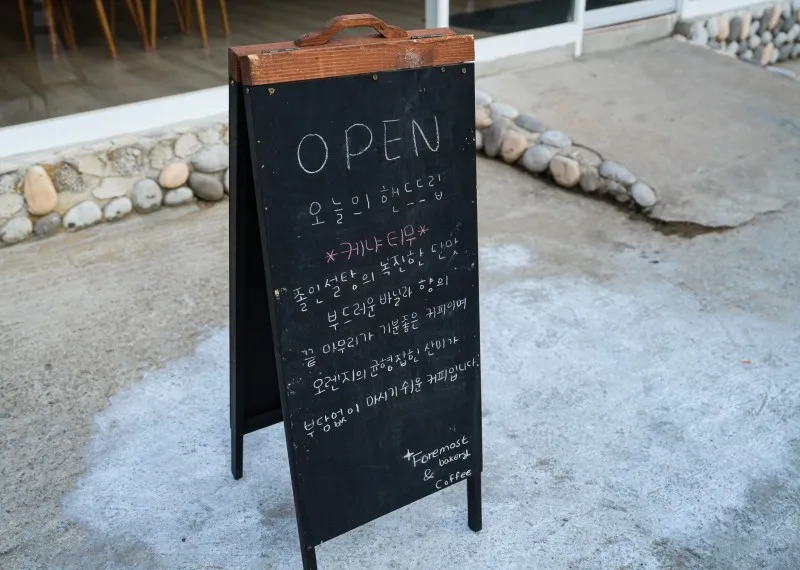 OPEN
오늘의 핸드드립
*케냐 티무*
졸인설탕의 녹진한 단맛
부드러운 바닐라 향의
끝 마무리가 기분좋은 커피이며
오렌지의 균형잡힌 산미가
부담없이 마시기 쉬운 커피입니다.
+Foremost
bakery
& Coffee